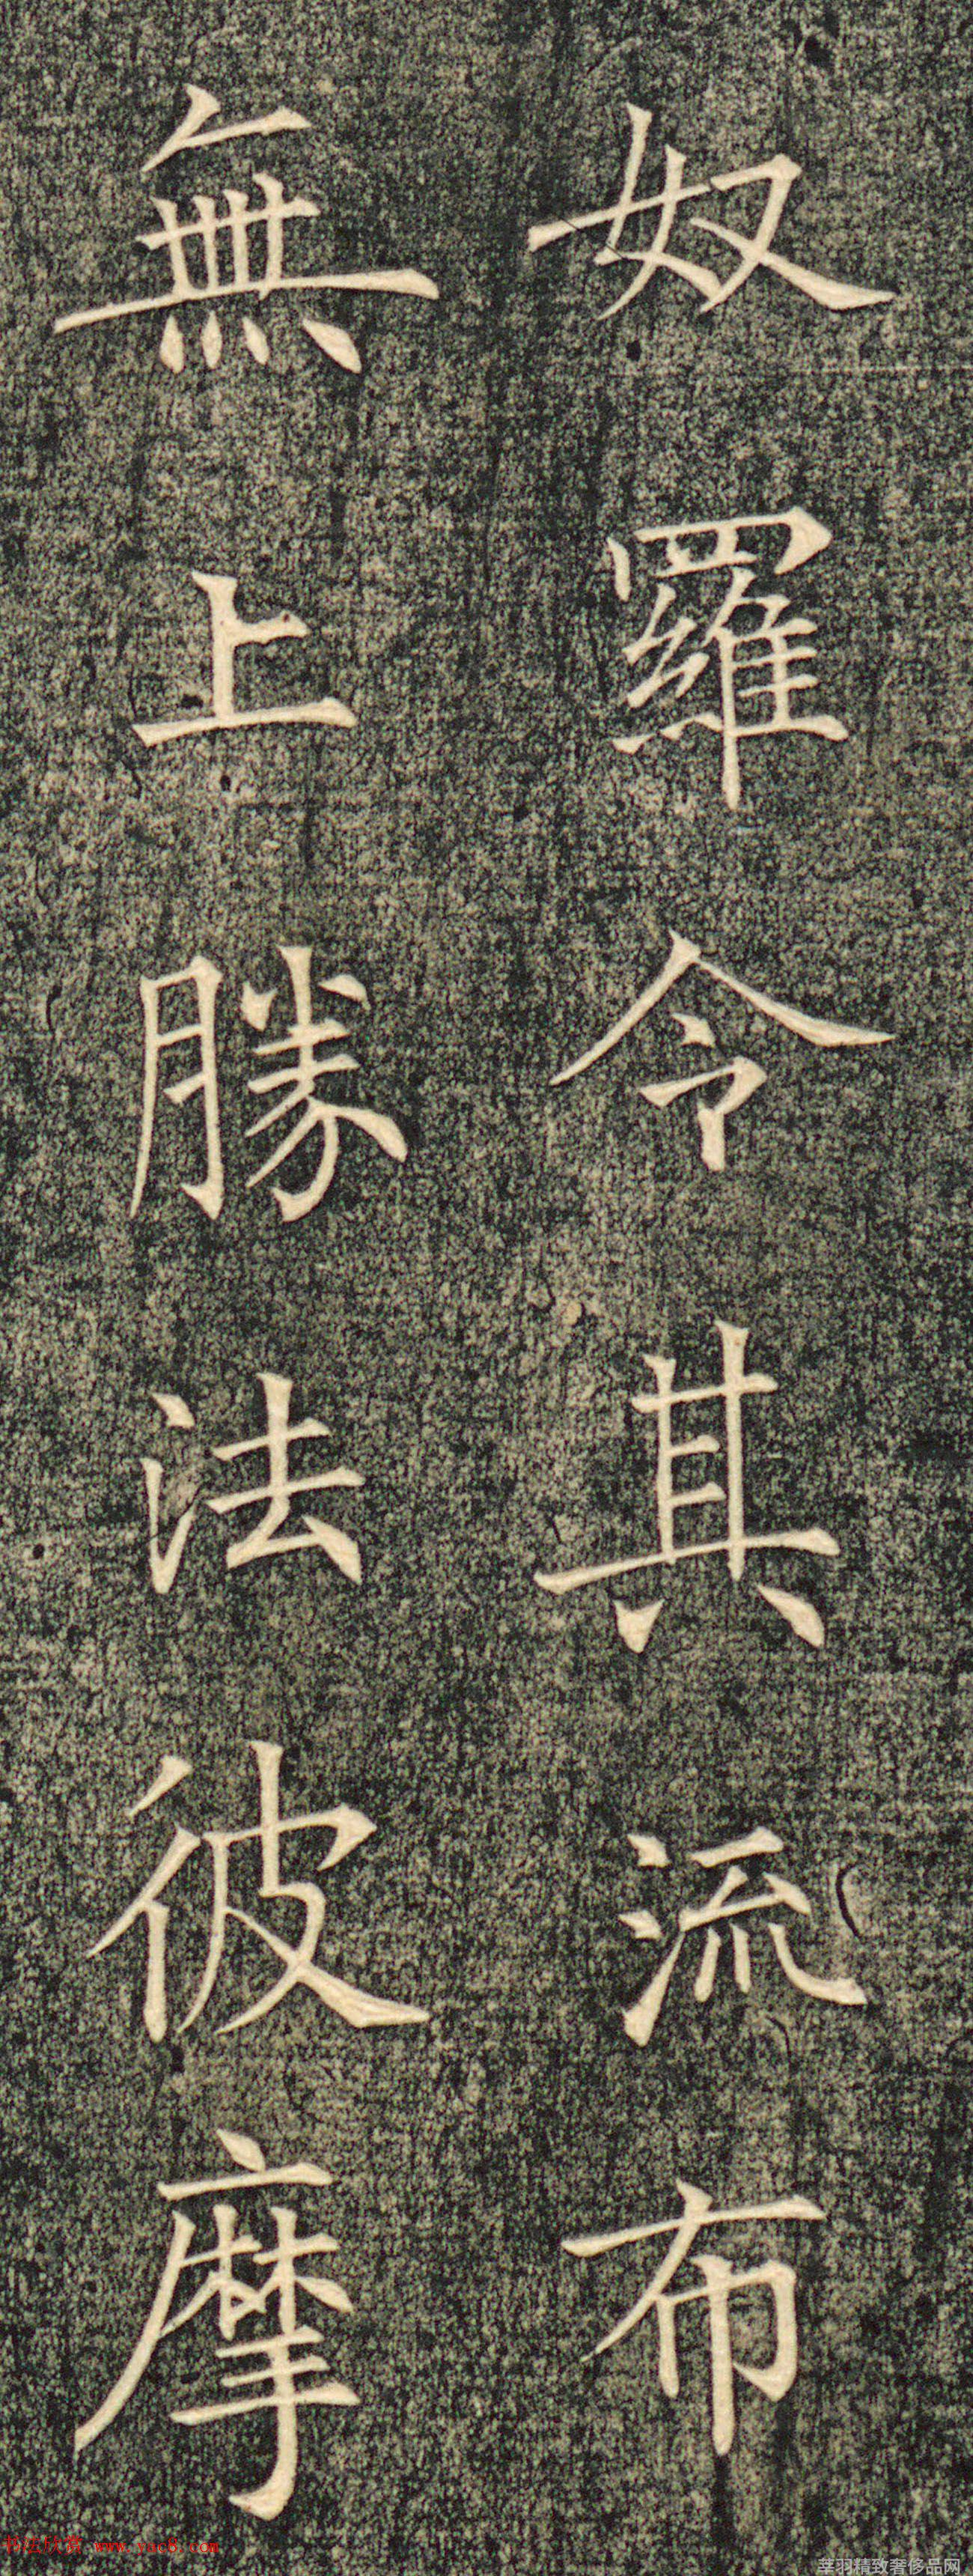 奴羅令其流布
無上勝法彼摩
书法欣赏 www.yac8.com
莘羽精致奢侈品网